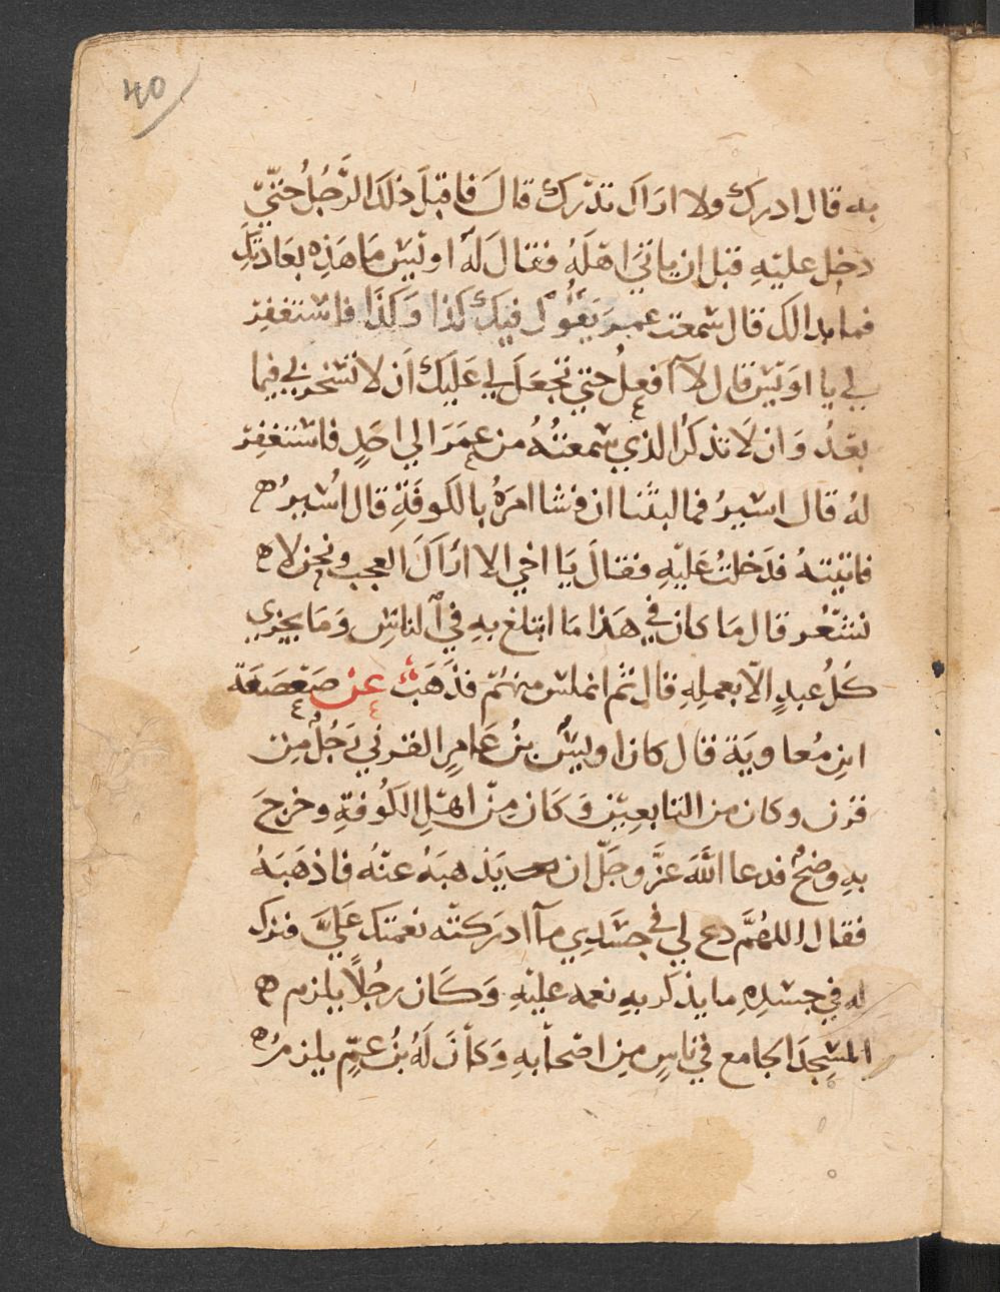 40
به قال ادرك ولا اراك تدرك قال فاقبل ذلك الرجل حتى
دخل عليه قبل ان ياتي اهله فقال له اويس ما هذه بعادتك
فما بدا لك قال سمعت عمر يقول فيك كذا وكذا فاستغفر
لي يا اويس قال لا افعل حتى تجعل لي عليك ان لا تسخر بي فيما
بعد وان لا تذكر الذي سمعته من عمر الي احد فاستغفر
له قال اسير فما لبثنا ان فشا امره بالكوفة قال اسير ه
فاتيته فدخلت عليه فقال يا اخي الا اراك العجب ونحن لا ه
نشعر قال ما كان في هذا ما اتبلغ به في الناس وما يجزي
كل عبد الا بعمله قال ثم انملس منهم فذهب عن صعصعة
ابن معاوية قال كان اويس بن عامر القرني رجل من
قرن وكان من التابعين وكان من اهل الكوفة وخرج
به وضح فدعا الله عز وجل ان يذهبه عنه فاذهبه
فقال اللهم دع لي في جسدي ما ادركته نعمتك علي فترك
له في جسده ما يذكر به نعمه عليه وكان رجلا يلزم ه
المسجد الجامع في ناس من اصحابه وكان له بن عم يلزمه